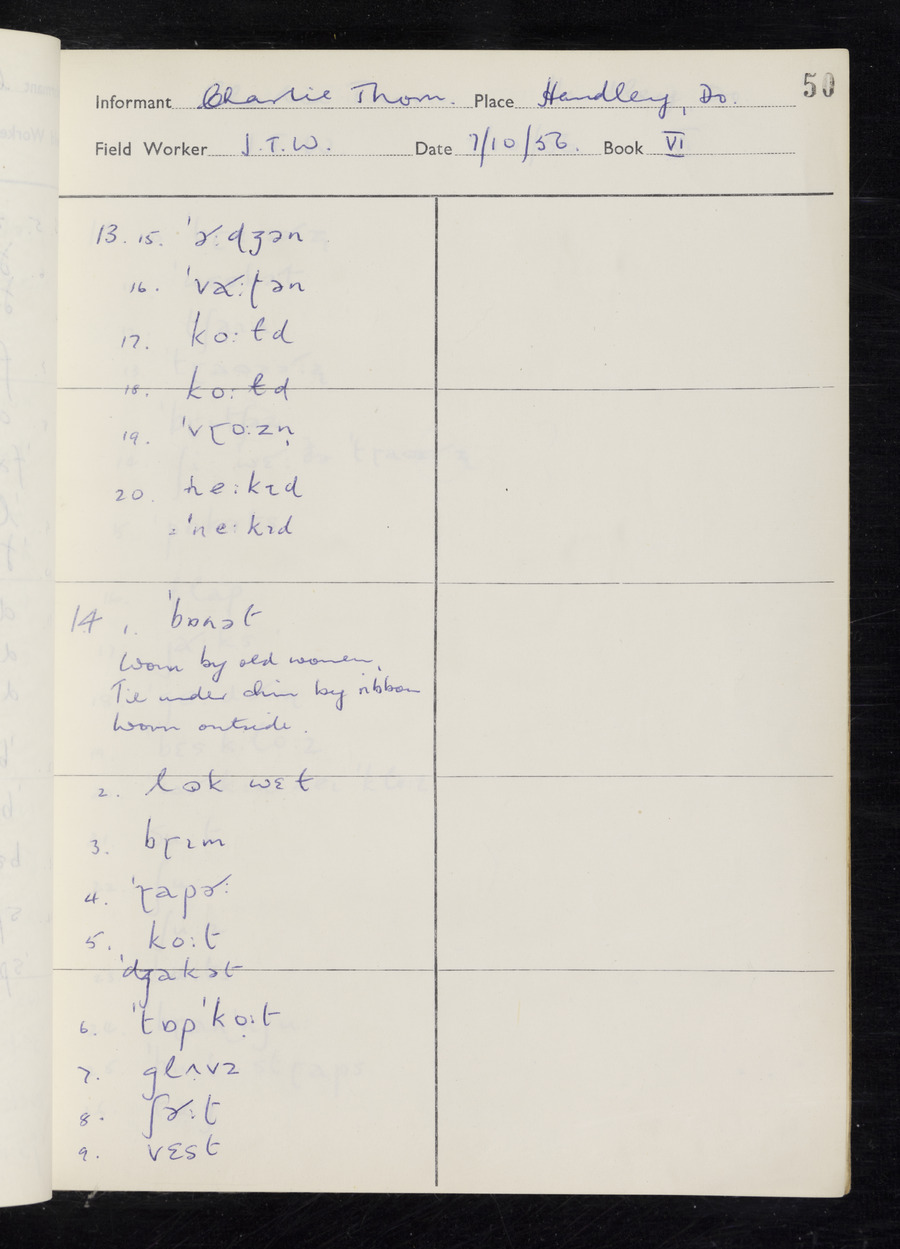 50
Informant Charlie Thorn. Place Handley, Do.
Field Worker J.T.W. Date 7/10/56. Book VI
13. 15. ˈɚ:dʒən
16. ˈvɚ:ʃən
17. ko:ɫd
18. ko:ɫd
19. ˈvɽo:zn̩
20. ne:kɪd
= ˈne:kɪd
14. 1. ˈbɒnət
Worn by old women.
Tie under chin by ribbon
Worn outside.
2. wɛt
3. bɽɪm
4. ˈɽapɚ:
5. ko:t
ˈdʒakət
6. ˈtɒpˈkọ:t
7. glʌvz
8. ʃɚ:t
9. vɛst